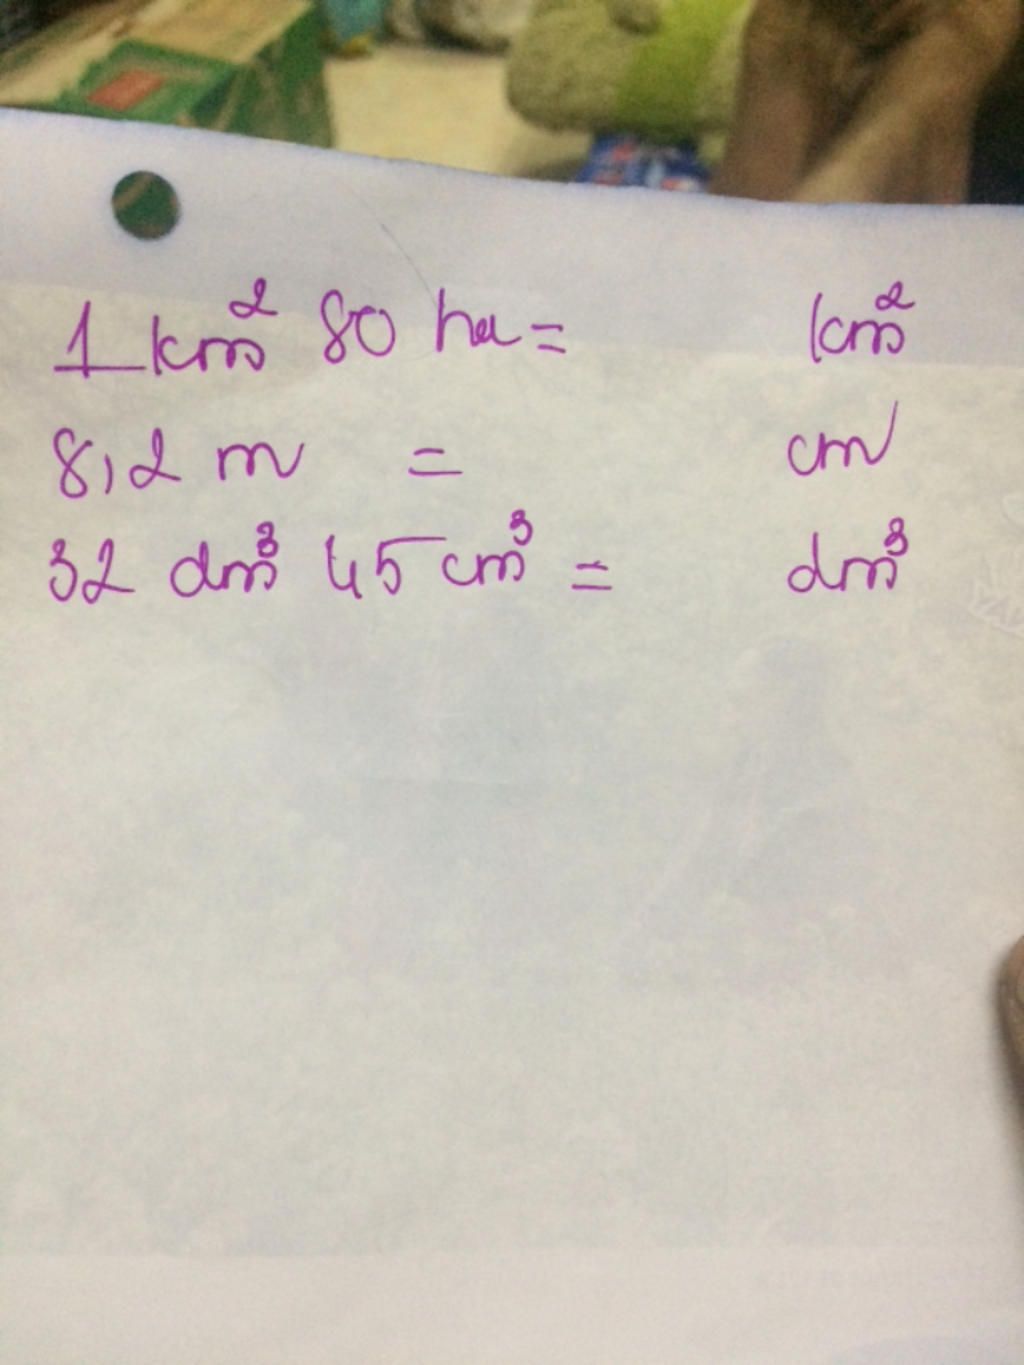 1 km² 80 ha = km²
8,2 m = cm
32 dm³ 45 cm³ = dm³